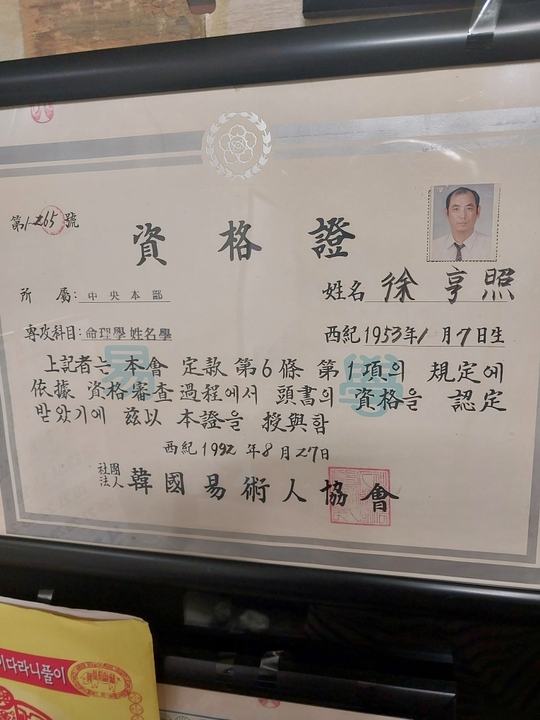 第1-265號
資格證
所屬: 中央本部
姓名 徐亨照
專攻科目: 命理學 姓名學
西紀 1953年 1月 7日生
易學
上記者는 本會 定款 第6條 第1項의 規定에
依據 資格審査過程에서 頭書의 資格을 認定
받았기에 玆以 本證을 授與함
西紀 1992年 8月 27日
社團
法人 韓國易術人協會
이다라니풀이